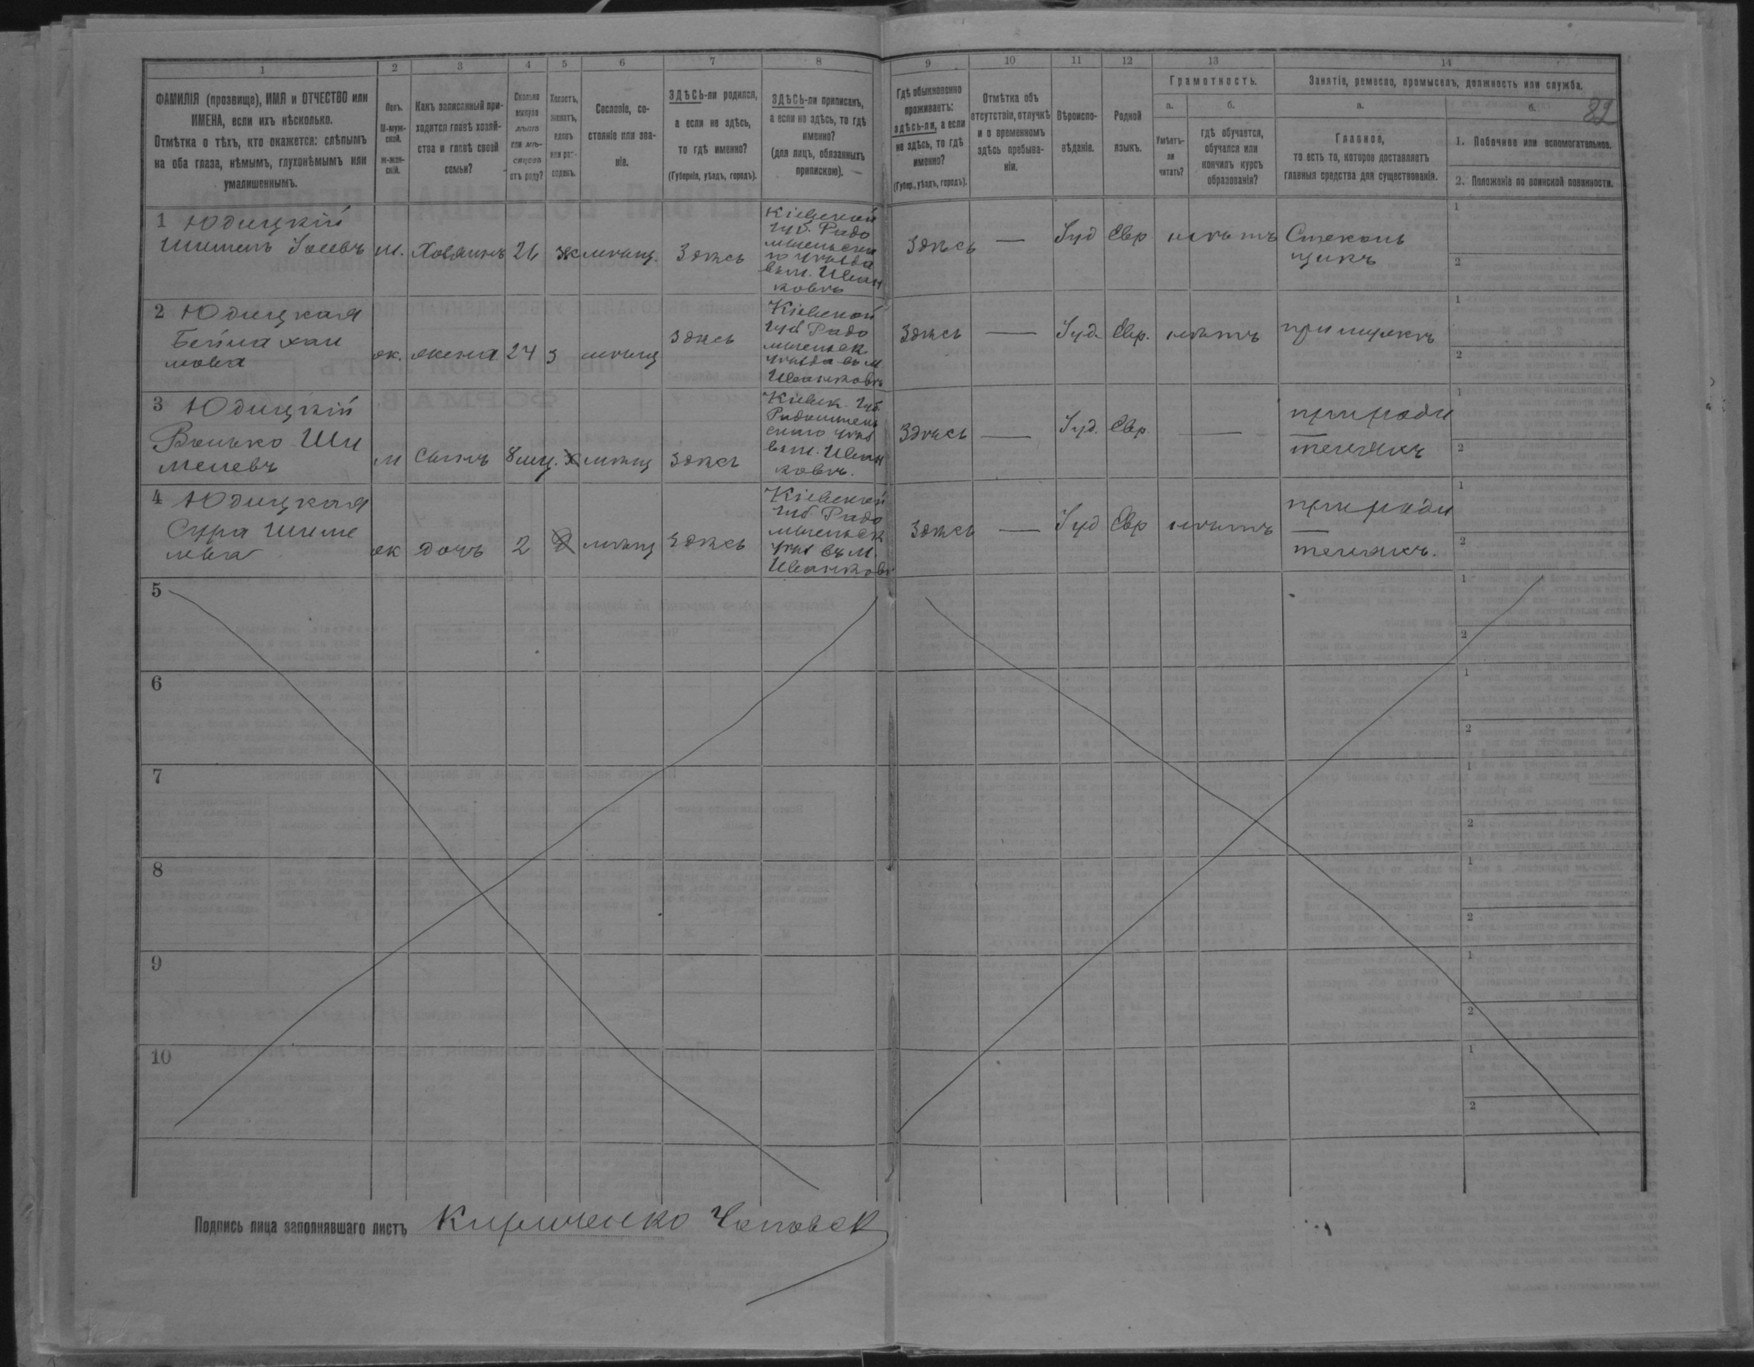 1 2 3 4 5 6 7 8 9 10 11 12 13 14
ФАМИЛІЯ (прозвище), ИМЯ и ОТЧЕСТВО или
ИМЕНА, если ихъ нѣсколько.
Отмѣтка о тѣхъ, кто окажется: слѣпымъ
на оба глаза, нѣмымъ, глухонѣмымъ или
умалишеннымъ.
Полъ.
М-муж-
ской.
Ж-жен-
скій.
Какъ записанный при-
ходится главѣ хозяй-
ства и главѣ своей
семьи?
Сколько
минуло
лѣтъ
или мѣ-
сяцевъ
отъ роду?
Холостъ,
женатъ,
вдовъ
или раз-
веденъ.
Сословіе, со-
стояніе или зва-
ніе.
ЗДѢСЬ-ли родился,
а если не здѣсь,
то гдѣ именно?
(Губернія, уѣздъ, городъ).
ЗДѢСЬ-ли приписанъ,
а если не здѣсь, то гдѣ
именно?
(для лицъ, обязанныхъ
припискою).
Гдѣ обыкновенно
проживаетъ:
здѣсь-ли, а если
не здѣсь, то гдѣ
именно?
(Губер., уѣздъ, городъ).
Отмѣтка объ
отсутствіи, отлучкѣ
и о временномъ
здѣсь пребыва-
ніи.
Вѣроиспо-
вѣданіе.
Родной
языкъ.
Грамотность.
а.
Умѣетъ-
ли
читать?
б.
гдѣ обучается,
обучался или
кончилъ курсъ
образованія?
Занятіе, ремесло, промыселъ, должность или служба.
а.
Главное,
то есть то, которое доставляетъ
главныя средства для существованія.
б. 22
1. Побочное или вспомогательное.
2. Положеніе по воинской повинности.
1 Юдицкій
Шимель м. Хозяинъ 26 ж мѣщ. Здѣсь
Кіевской
губ. Радо
мысльска
го уѣзда
въ м. Иван
ковѣ
Здѣсь — Іуд Евр нѣтъ Стеколь
щикъ
1
2
2 Юдицкая
Бейла Хаи
мова ж. жена 24 з мѣщ здѣсь
Кіевской
губ Радо
мысльск
уѣзда въ м
Иванковѣ
Здѣсь — Іуд. Евр. нѣтъ при мужѣ
1
2
3 Юдицкій
Ши
мелевъ м сынъ 8 мц. х мѣщ здѣсь
Кіевск. губ
Радомысль
скаго уѣз
въ м. Иван
ковѣ.
Здѣсь — Іуд. Евр. — при роди
теляхъ
1
2
4 Юдицкая
Сура Шиме
лева ж дочь 2 мѣщ здѣсь
Кіевской
губ Радо
мысльск
уѣз въ м.
Иванковѣ
Здѣсь — Іуд Евр нѣтъ при роди
теляхъ.
1
2
5 1
2
6 1
2
7 1
2
8 1
2
9 1
2
10 1
2
Подпись лица заполнявшаго листъ Кириченко